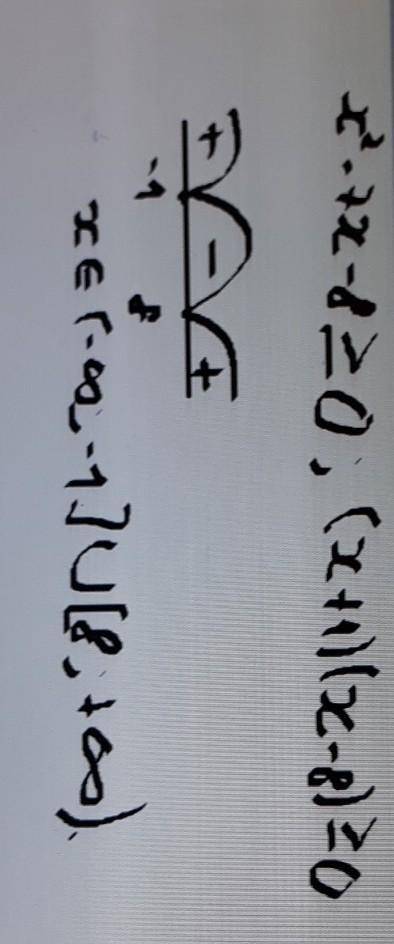 x²-7x-8≥0; (x+1)(x-8)≥0
+ - +
-1 8
x∈(-∞-1]∪[8;+∞).